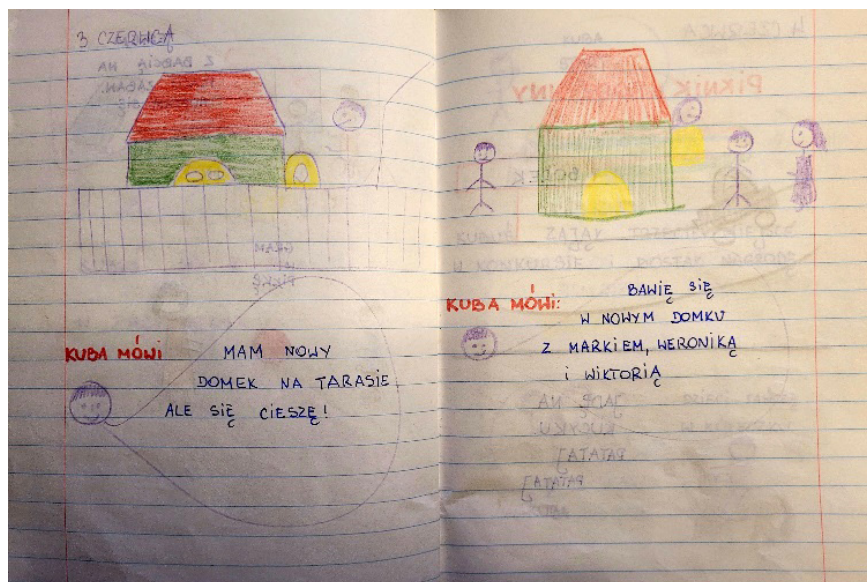 3 CZERWCA
KUBA MÓWI
MAM NOWY
DOMEK NA TARASIE
ALE SIĘ CIESZĘ!
KUBA MÓWI:
BAWIĘ SIĘ
W NOWYM DOMKU
Z MARKIEM, WERONIKĄ
I WIKTORIĄ